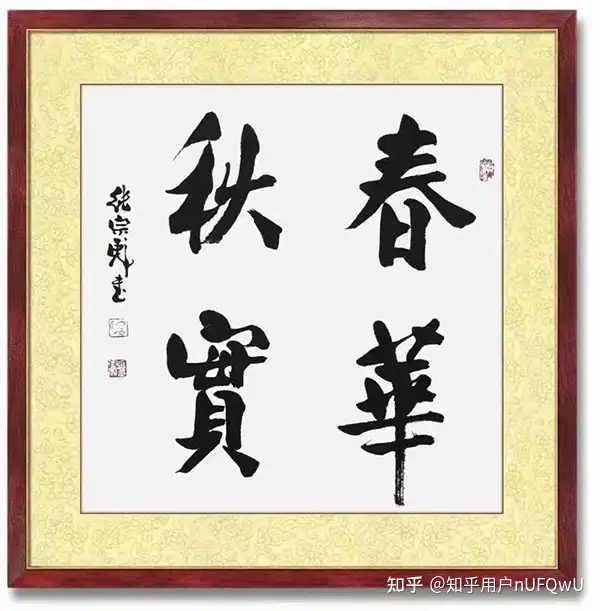 春華
秋實
張宗彪書
知乎 @知乎用户nUFQwU